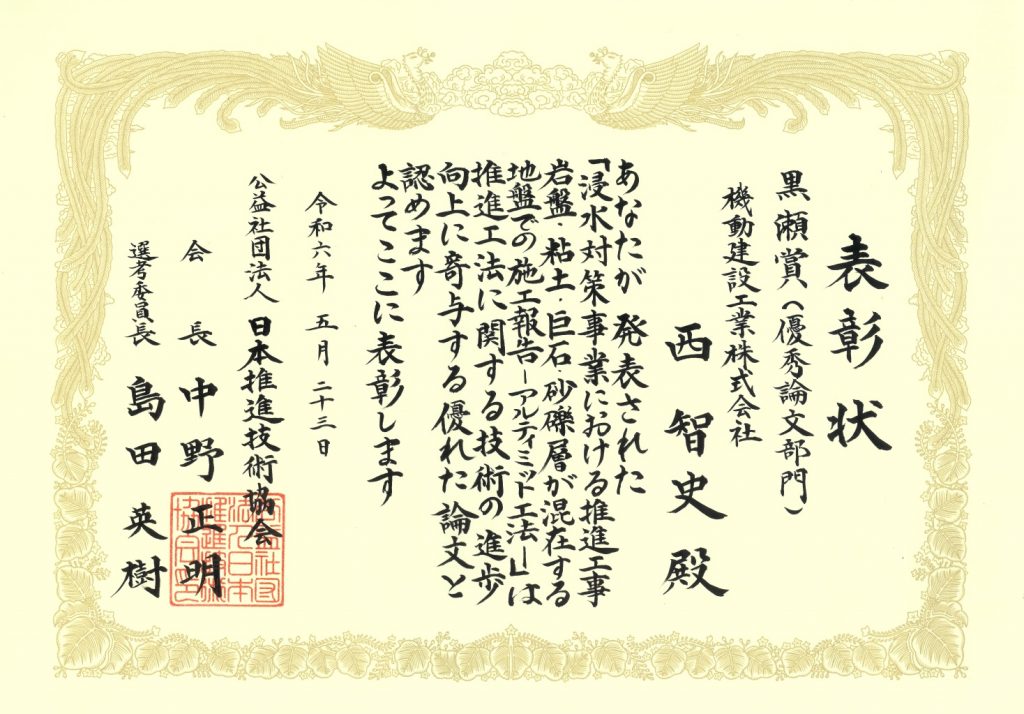 表彰状
黒瀬賞(優秀論文部門)
機動建設工業株式会社
西智史殿
あなたが発表された
「浸水対策事業における推進工事
岩盤・粘土・巨石・砂礫層が混在する
地盤での施工報告−アルティミット工法−」は
推進工法に関する技術の進歩
向上に寄与する優れた論文と
認めます
よってここに表彰します
令和六年 五月二十三日
公益社団法人 日本推進技術協会
会長 中野正明
選考委員長 島田英樹